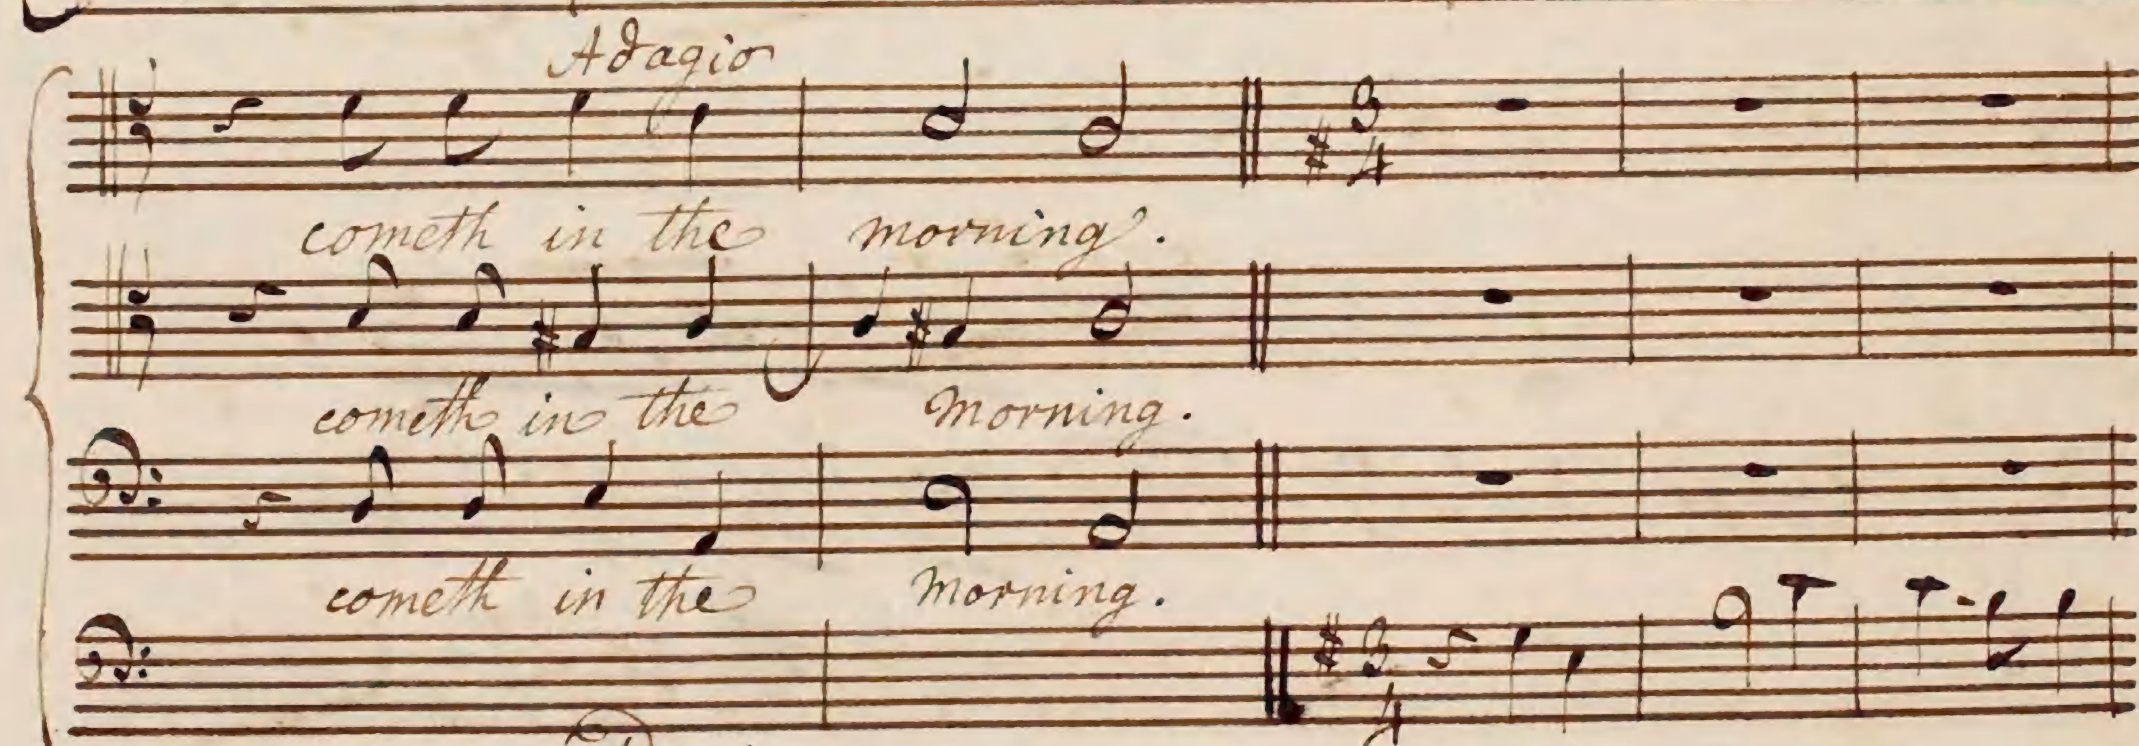 Adagio
cometh in the morning.
cometh in the Morning.
cometh in the Morning.